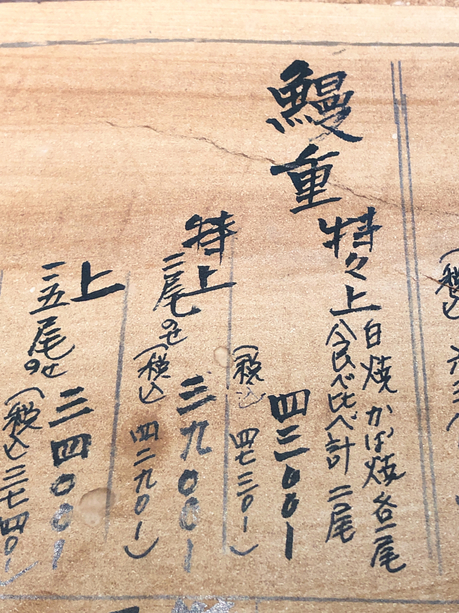 鰻重
特々上
白焼 かば焼 各一尾
食べ比べ計 二尾
四三〇〇ー
(税込 四七三〇ー)
特上
二尾のせ
三九〇〇ー
(税込 四二九〇ー)
上
一五尾のせ
三四〇〇ー
(税込 三七四〇ー)
(税込